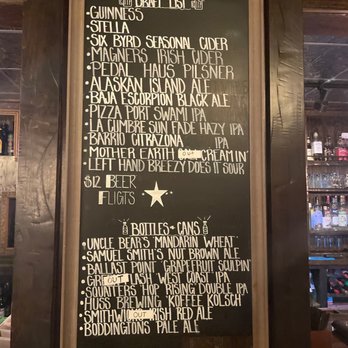 DRAFT LIST
• GUINNESS
• STELLA
• SIX BYRD SEASONAL CIDER
• MAGNERS IRISH CIDER
• PEDAL HAUS PILSNER
• ALASKAN ISLAND ALE
• BAJA ESCORPION BLACK ALE
• PIZZA PORT SWAMI IPA
• LA CUMBRE SUN FADE HAZY IPA
• BARRIO CITRAZONA IPA
• MOTHER EARTH OUT CREAMIN'
• LEFT HAND BREEZY DOES IT SOUR
$12 BEER
FLIGTS
BOTTLES + CANS
• UNCLE BEAR'S MANDARIN WHEAT
• SAMUEL SMITH'S NUT BROWN ALE
• BALLAST POINT GRAPEFRUIT SCULPIN'
OUT LASH WEST COAST IPA
• SQUATTERS HOP RISING DOUBLE IPA
• HUSS BREWING KOFFEE KOLSCH
• SMITHWI OUT IRISH RED ALE
• BODDINGTONS PALE ALE